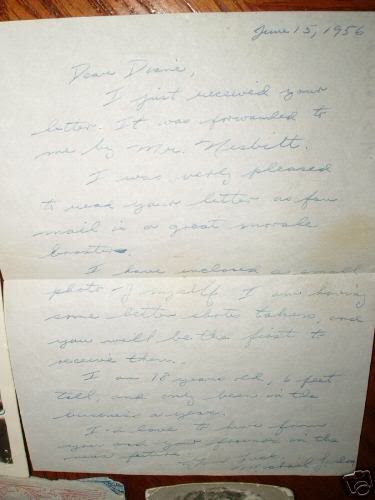 June 15, 1956
Dear Diane,
I just received your
letter. It was forwarded to
me by Mr. Nesbitt.
I was very pleased
to read your letter as fan
mail is a great morale
booster.
I have enclosed a small
photo of myself. I am having
some better shots taken, and
you will be the first to
receive them.
I am 18 years old, 6 feet
tall, and only been in the
business a year.
I'd love to hear from
you and your friends in the
near future.
Michael